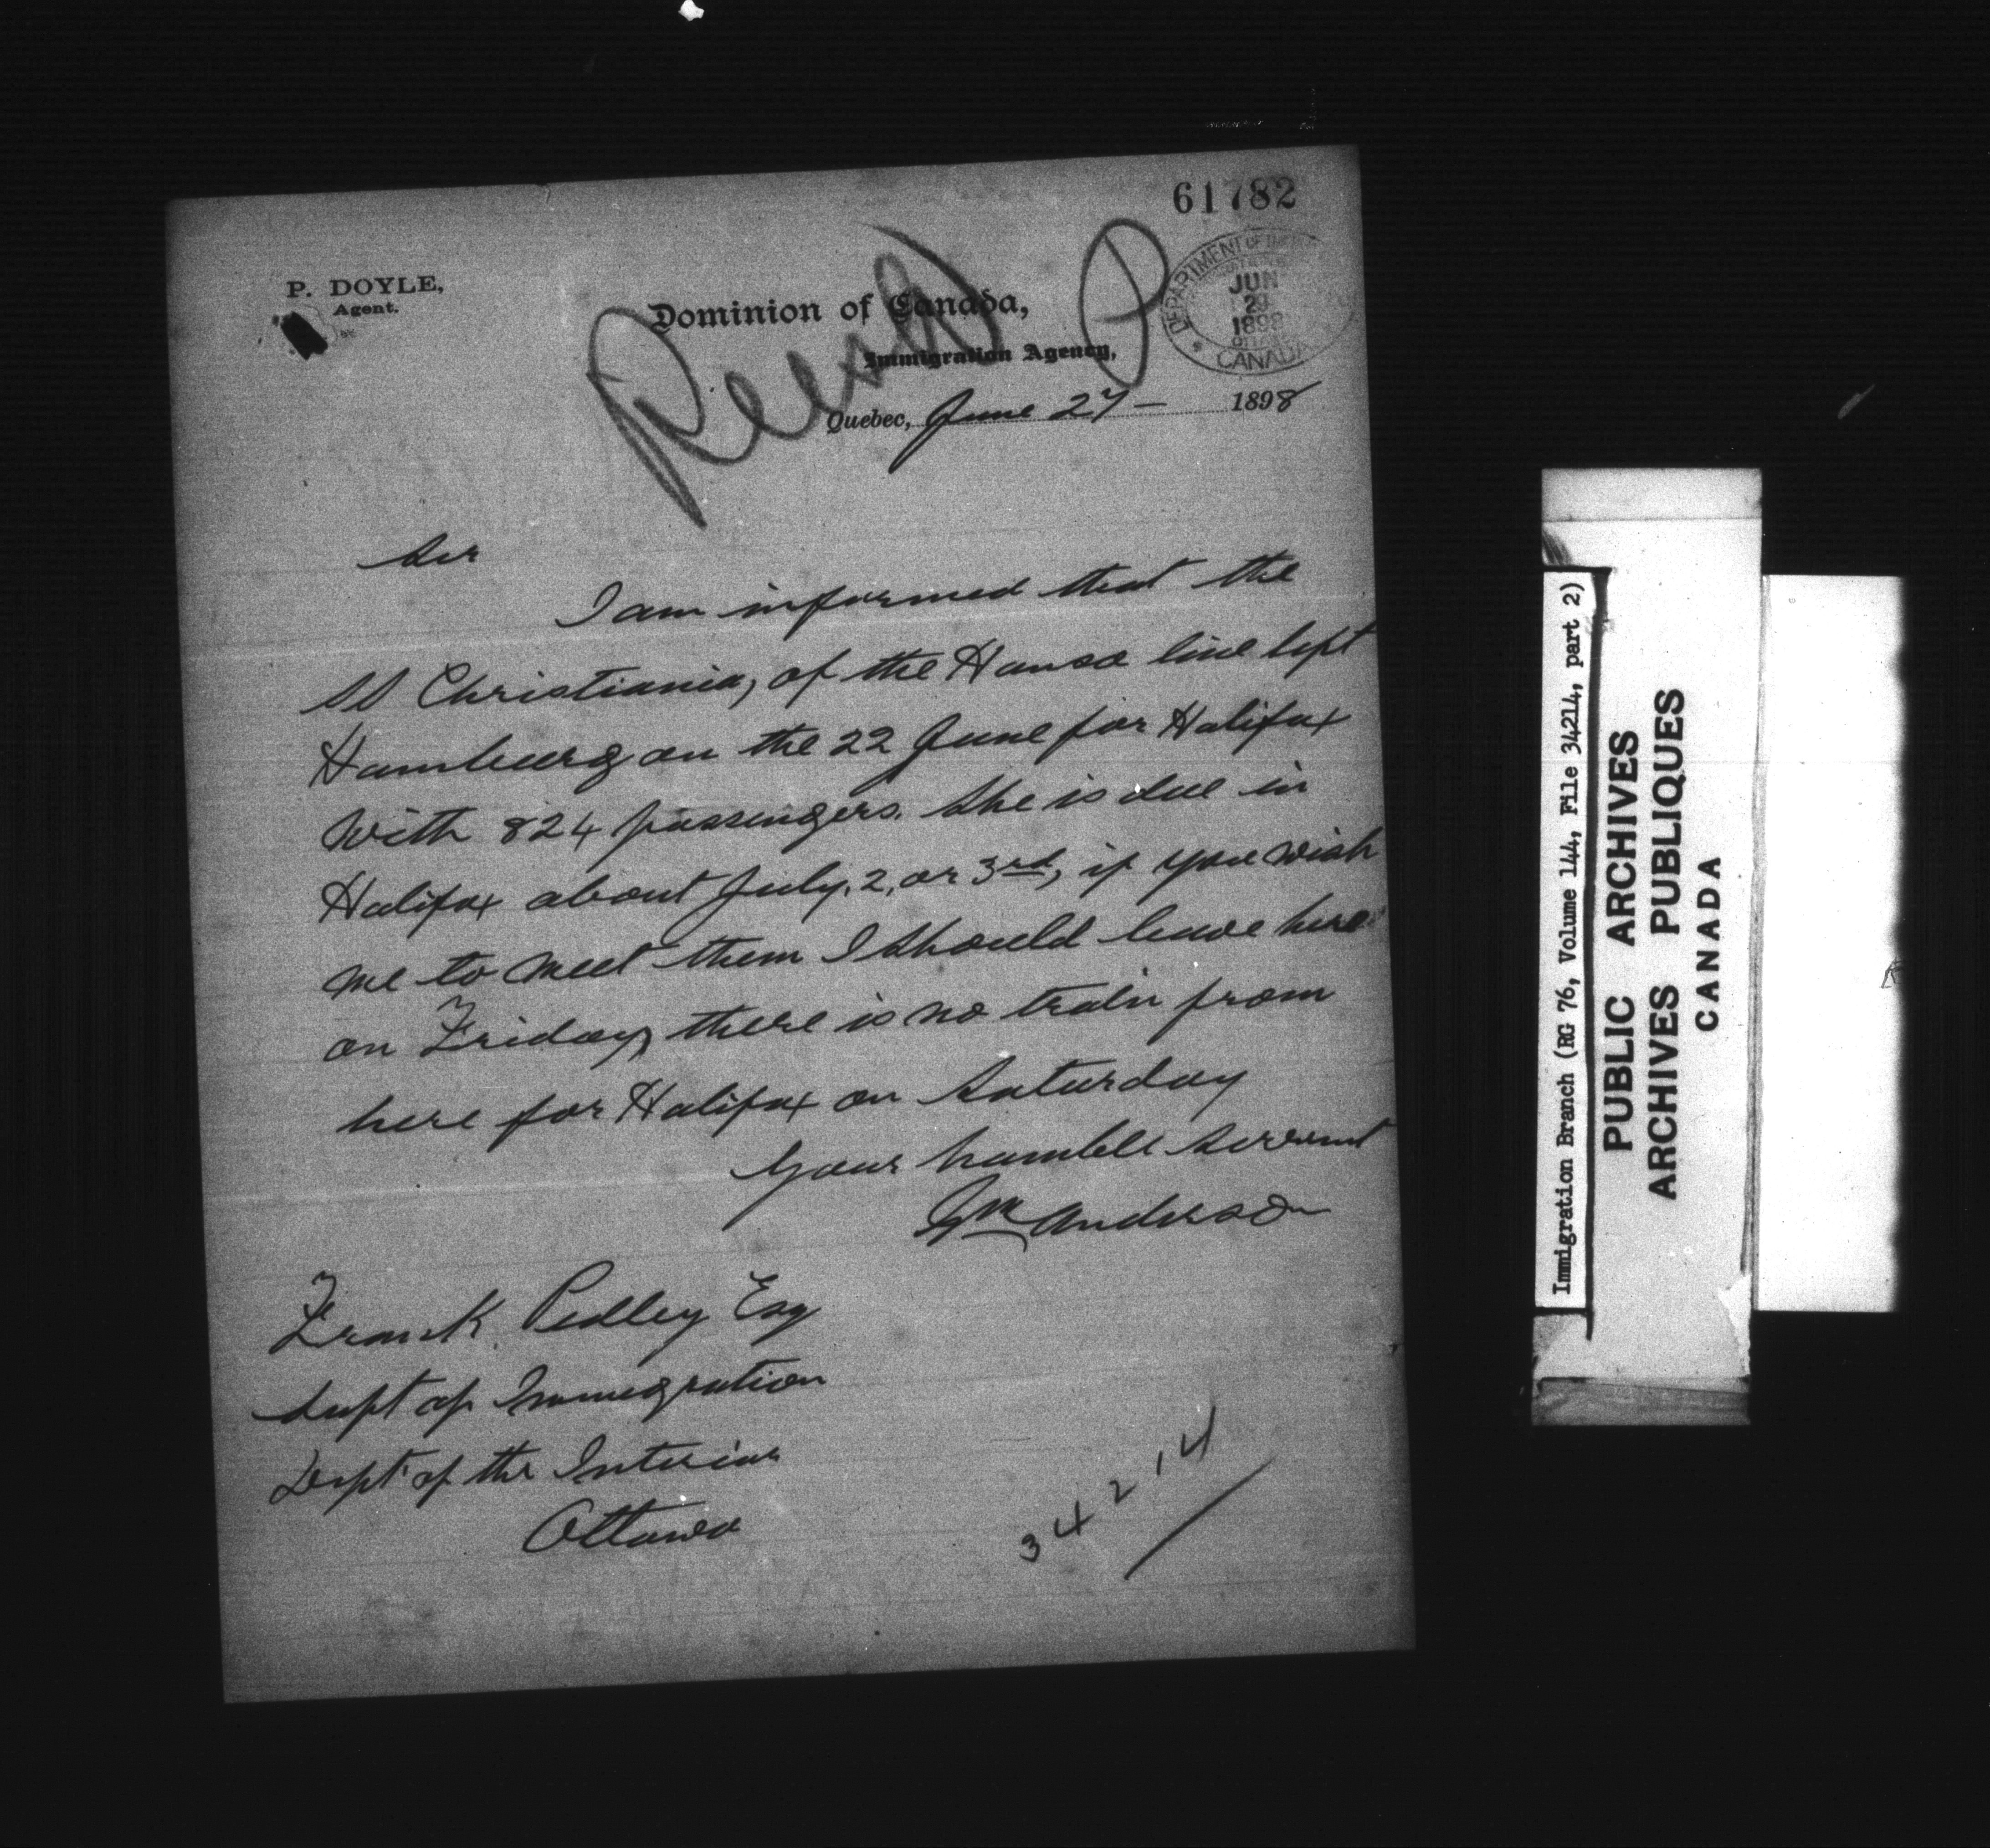 61782
P. DOYLE,
Agent.
Dominion of Canada,
Immigration Agency,
DEPARTMENT OF THE
JUN
29
1898
CANADA
Quebec, June 27 — 1898
Sir
I am informed that the
SS Christiania, of the Hansa line left
Hamburg on the 22 June for Halifax
With 824 passengers. She is due in
Halifax about July. 2, or 3rd, if you wish
me to meet them I should leave here
on Friday, there is no train from
here for Halifax on Saturday
Your humble servant
Anderson
Frank Pedley Esq
Supt of Immigration
Dept of the Interior
Ottawa
34214
Immigration Branch (RG 76, Volume 144, File 34214, part 2)
PUBLIC ARCHIVES
ARCHIVES PUBLIQUES
CANADA